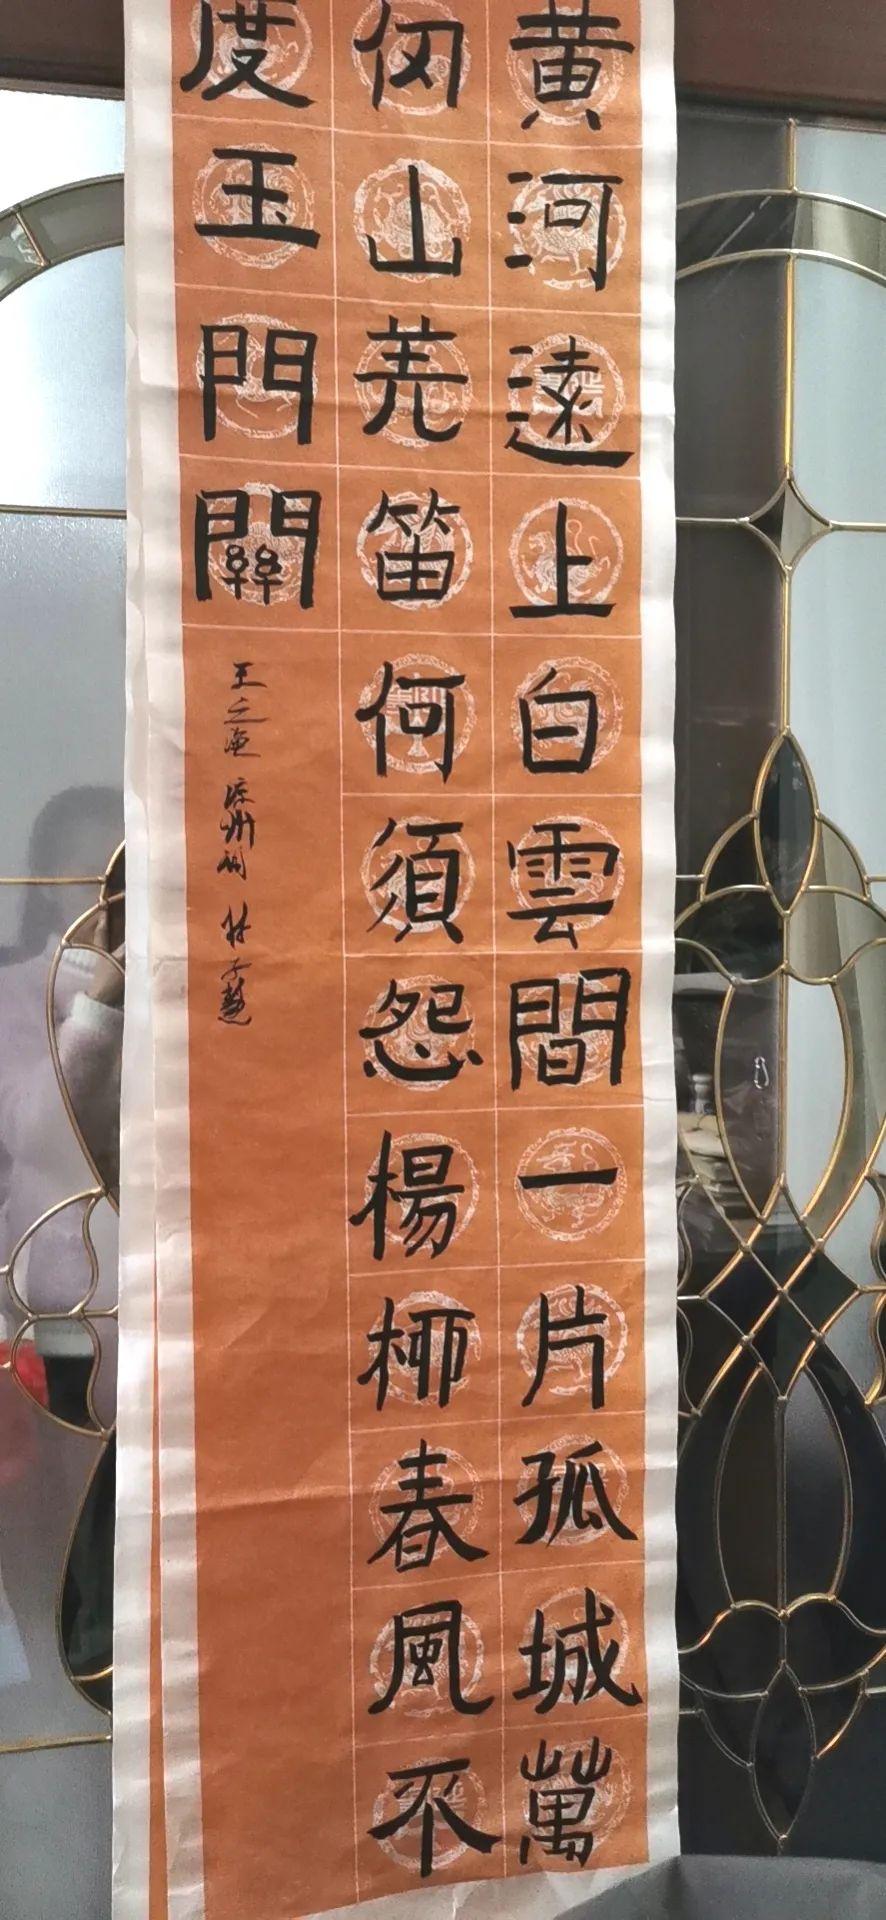 黄河遠上白雲間一片孤城萬
仞山羌笛何須怨楊柳春風不
度玉門關
王之渙 涼州詞 林子慧